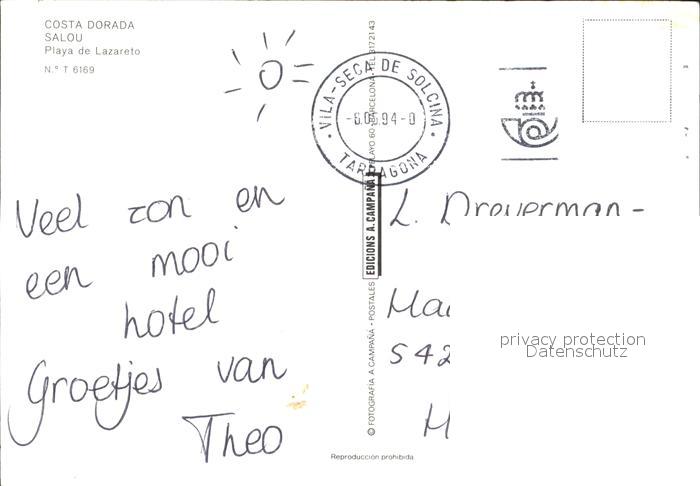 COSTA DORADA
SALOU
Playa de Lazareto
N.º T 6169
VILA-SECA DE SOLCINA
TARRAGONA
Veel zon en
een mooi
hotel
Groetjes van
Theo
© FOTOGRAFIA A CAMPAÑA - POSTALES
EDICIONS A. CAMPAÑA
PELAYO 60 BARCELONA - TEL. 3172143
L. Dreverman-
542
privacy protection
Datenschutz
Reproducción prohibida